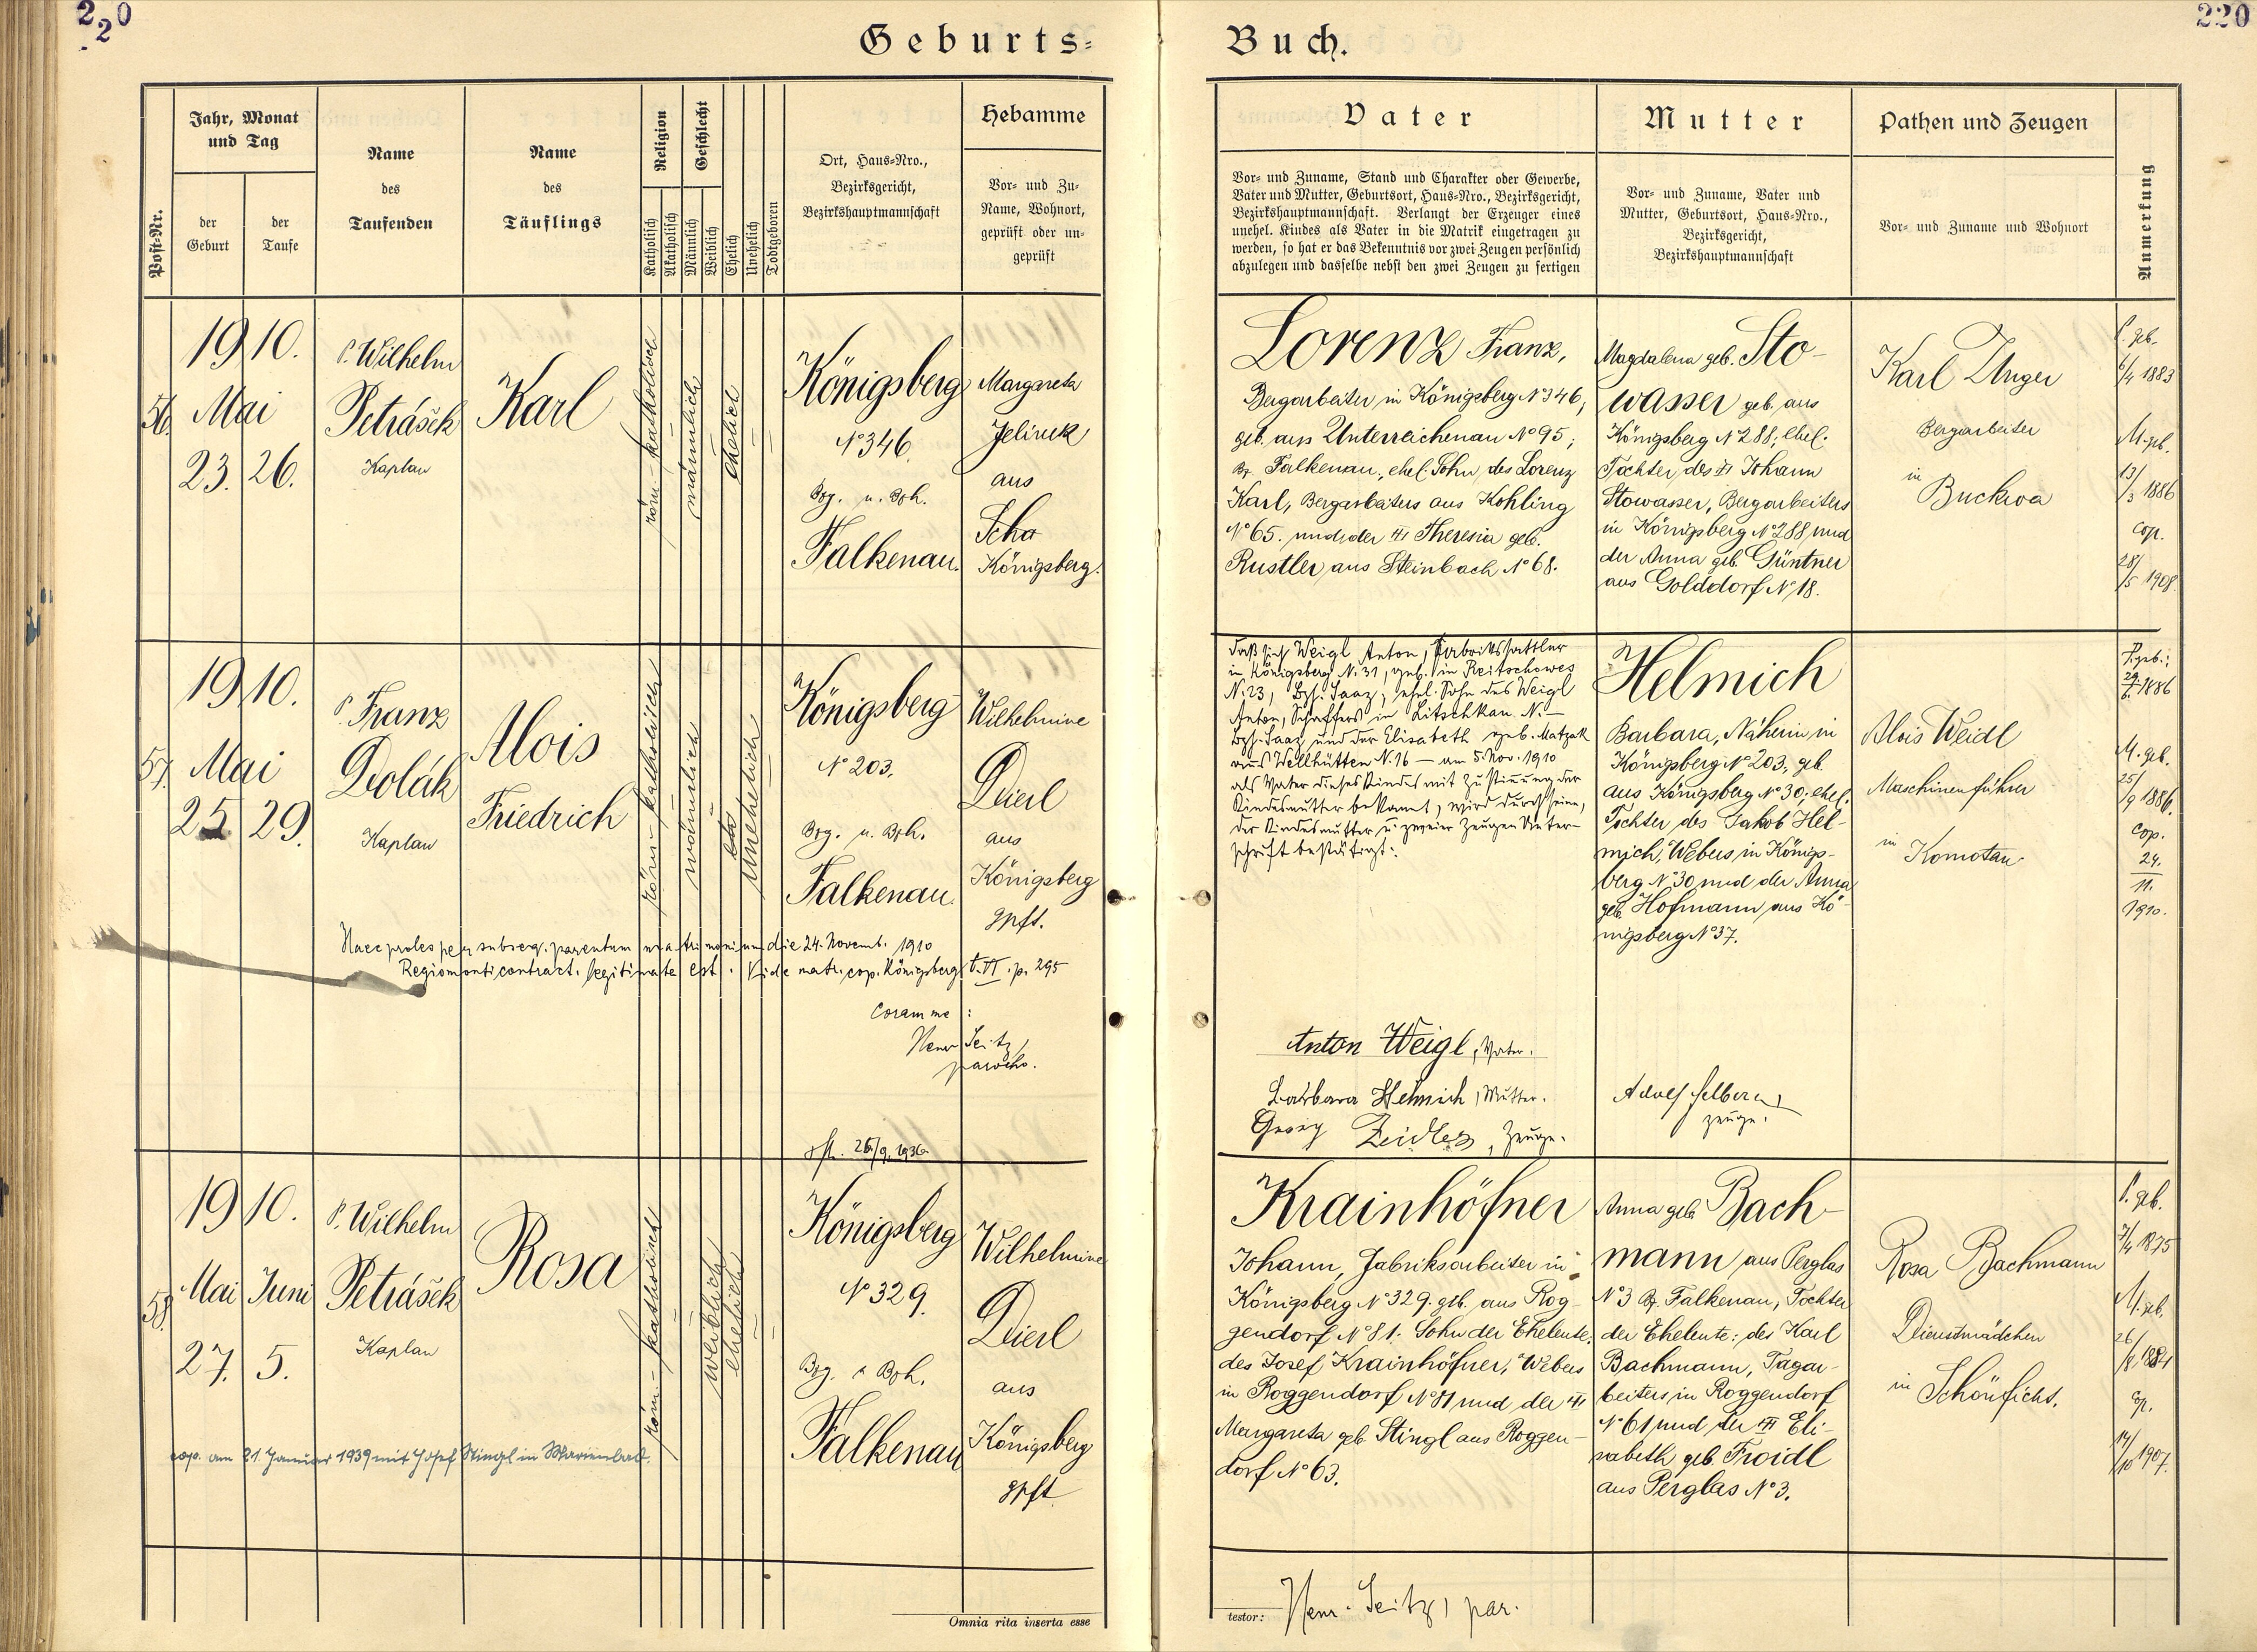 220
220
Geburts=
Buch.
Post-Nr.
Jahr, Monat
und Tag
der
Geburt
der
Taufe
Name
des
Taufenden
Name
des
Täuflings
Religion
Katholisch
Akatholisch
Geschlecht
Männlich
Weiblich
Ehelich
Unehelich
Todtgeboren
Ort, Haus=Nro.,
Bezirksgericht,
Bezirkshauptmannschaft
Hebamme
Vor= und Zu=
Name, Wohnort,
geprüft oder un=
geprüft
Vater
Vor= und Zuname, Stand und Charakter oder Gewerbe,
Vater und Mutter, Geburtsort, Haus=Nro., Bezirksgericht,
Bezirkshauptmannschaft. Verlangt der Erzeuger eines
unehel. Kindes als Vater in die Matrik eingetragen zu
werden, so hat er das Bekenntnis vor zwei Zeugen persönlich
abzulegen und dasselbe nebst den zwei Zeugen zu fertigen
Mutter
Vor= und Zuname, Vater und
Mutter, Geburtsort, Haus=Nro.,
Bezirksgericht,
Bezirkshauptmannschaft
Pathen und Zeugen
Vor= und Zuname und Wohnort
Anmerkung
56.
1910.
Mai
23. 26.
P. Wilhelm
Petrášek
Kaplan
Karl
röm.-katholisch
männlich
ehelich
Königsberg
No 346.
Bzg. u. Bzh.
Falkenau.
Margareta
Jelinek
aus
Königsberg.
Lorenz Franz,
Bergarbeiter in Königsberg No 346,
geb. aus Unterreichenau No 95;
Bz. Falkenau, ehel. Sohn des Lorenz
Karl, Bergarbeiters aus Kohling
No 65. und der Theresia geb.
Rustler aus Steinbach No 68.
Magdalena geb. Sto-
wasser geb. aus
Königsberg No 288; ehel.
Tochter des Johann
Stowasser, Bergarbeiters
in Königsberg No 288 und
der Anna geb. Güntner
aus Golddorf No 18.
Karl Unger
Bergarbeiter
in
Buckwa
P. geb.
6/4 1883
M. geb.
13/3 1886
cop.
28/5 1908.
57.
1910.
Mai
25 29.
P. Franz
Dolák
Kaplan
Alois
Friedrich
röm.-katholisch
männlich
unehelich
Königsberg
No 203.
Bzg. u. Bzh.
Falkenau.
Wilhelmine
Deierl
aus
Königsberg
gpft.
Haec proles per subseq. parentum matrimonium die 24. Novemb. 1910
Regiomonti contract. legitimata est. Vide matr. cop. Königsberg t. VI. p. 295
Coram me:
Henr Seitz,
parocho.
26/9. 1936
Daß sich Weigl Anton, Fabrikssattler
in Königsberg N. 31, geb. in Reitschowes
N. 23, Bzh. Saaz, ehel. Sohn des Weigl
Anton, Schaffers in Litschkau N. —
Bzh. Saaz und der Elisabeth geb. Matzak
aus Wellhütten N. 16 — am 5. Nov. 1910
als Vater dieses Kindes mit Zustimmung der
Kindesmutter bekannt, wird durch seine,
der Kindesmutter u. zweier Zeugen Unter-
schrift bestätigt:
Anton Weigl, Vater.
Barbara Helmich, Mutter.
Georg Zeidler, Zeuge.
Helmich
Barbara, Näherin in
Königsberg No 203; geb.
aus Königsberg No 30; ehel.
Tochter des Jakob Hel-
mich, Webers in Königs-
berg No 30 und der Anna
geb. Hofmann aus Kö-
nigsberg No 37.
Adolf
Zeuge.
Alois Weidl
Maschinenführer
in Komotau
P. geb.:
29/6. 1886
M. geb.
25/9 1886.
cop.
24.
11.
1910.
58.
1910.
Mai Juni
27. 5.
P. Wilhelm
Petrášek
Kaplan
Rosa
röm.-katholisch
weiblich
ehelich
Königsberg
No 329.
Bzg. & Bzh.
Falkenau
Wilhelmine
Deierl
aus
Königsberg
gpft
cop. am 21. Januar 1939 mit Josef Stingl in Marienbad.
Krainhöfner
Johann, Fabriksarbeiter in
Königsberg No 329. geb. aus Rog-
gendorf No 81. Sohn der Eheleute:
des Josef Krainhöfner, Webers
in Roggendorf No 81 und der
Margareta geb. Stingl aus Roggen-
dorf No 63.
Anna geb. Bach-
mann aus Perglas
No 3 Bz. Falkenau, Tochter
der Eheleute: des Karl
Bachmann, Tagar-
beiters in Roggendorf
No 61 und der Eli-
sabeth geb. Froidl
aus Perglas No 3.
Rosa Bachmann
Dienstmädchen
in Schönficht.
P. geb.
7/4 1875
M. geb.
26/8. 1884
cop.
14/10 1907.
Omnia rita inserta esse
testor: Henr. Seitz, par.